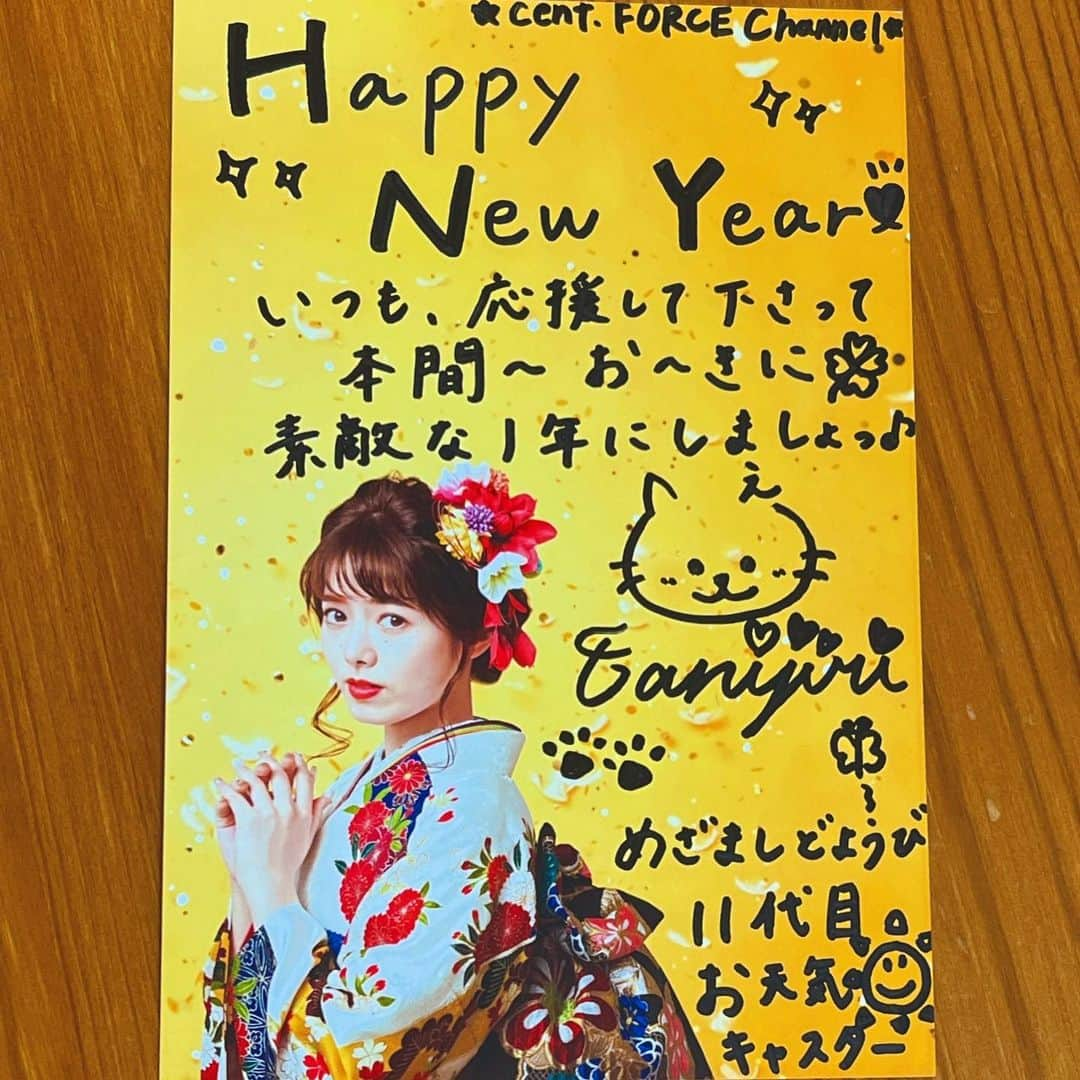 ★cent. FORCE Channel★
Happy
New Year
いつも、応援して下さって
本間〜お〜きに
素敵な1年にしましょっ♪
え
Taniyuri
めざましどようび
11代目
お天気
キャスター